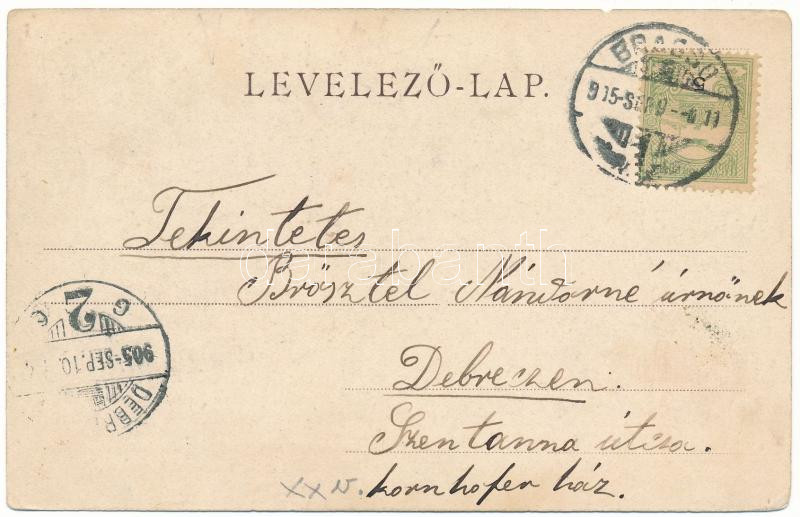 LEVELEZŐ-LAP.
BRASSÓ
905-SEP.9
Tekintetes
Brösztel Nándorné úrnőnek
Debreczen.
Szentanna útcza.
XX N. kornhofer ház.
2
C C
905-SEP.10.
DEBR
darabanth